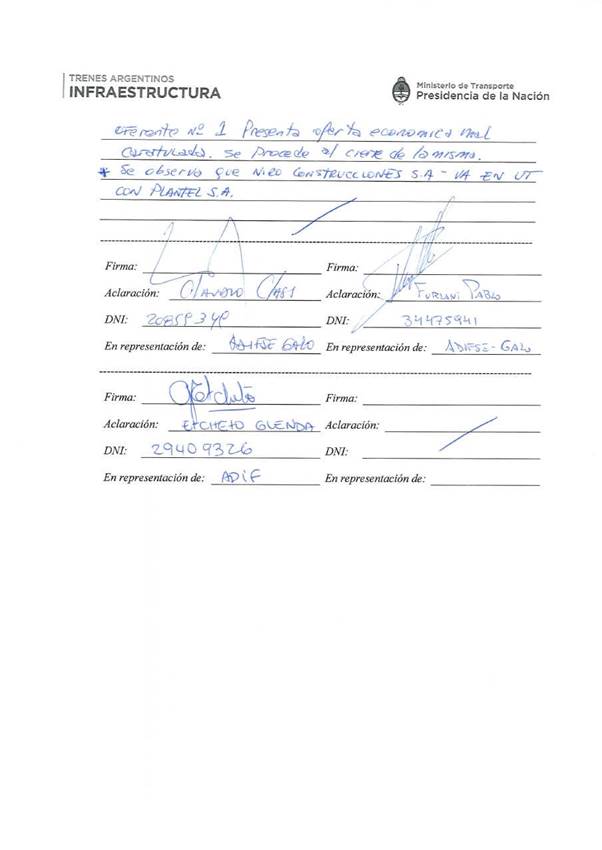 TRENES ARGENTINOS
INFRAESTRUCTURA
Ministerio de Transporte
Presidencia de la Nación
oferente Nº 1 Presenta oferta economica mal
caratulada. Se procede al cierre de la misma.
* Se observo que NIRO CONSTRUCCIONES S.A - VA EN UT
CON PLANTEL S.A.
Firma: Firma:
Aclaración: Claudio Aclaración: FURLANI PABLO
DNI: DNI: 34475941
En representación de: ADIFSE GALO En representación de: ADIFSE-GALO
Firma: Firma:
Aclaración: ETCHETO GLENDA Aclaración:
DNI: 29409326 DNI:
En representación de: ADIF En representación de: